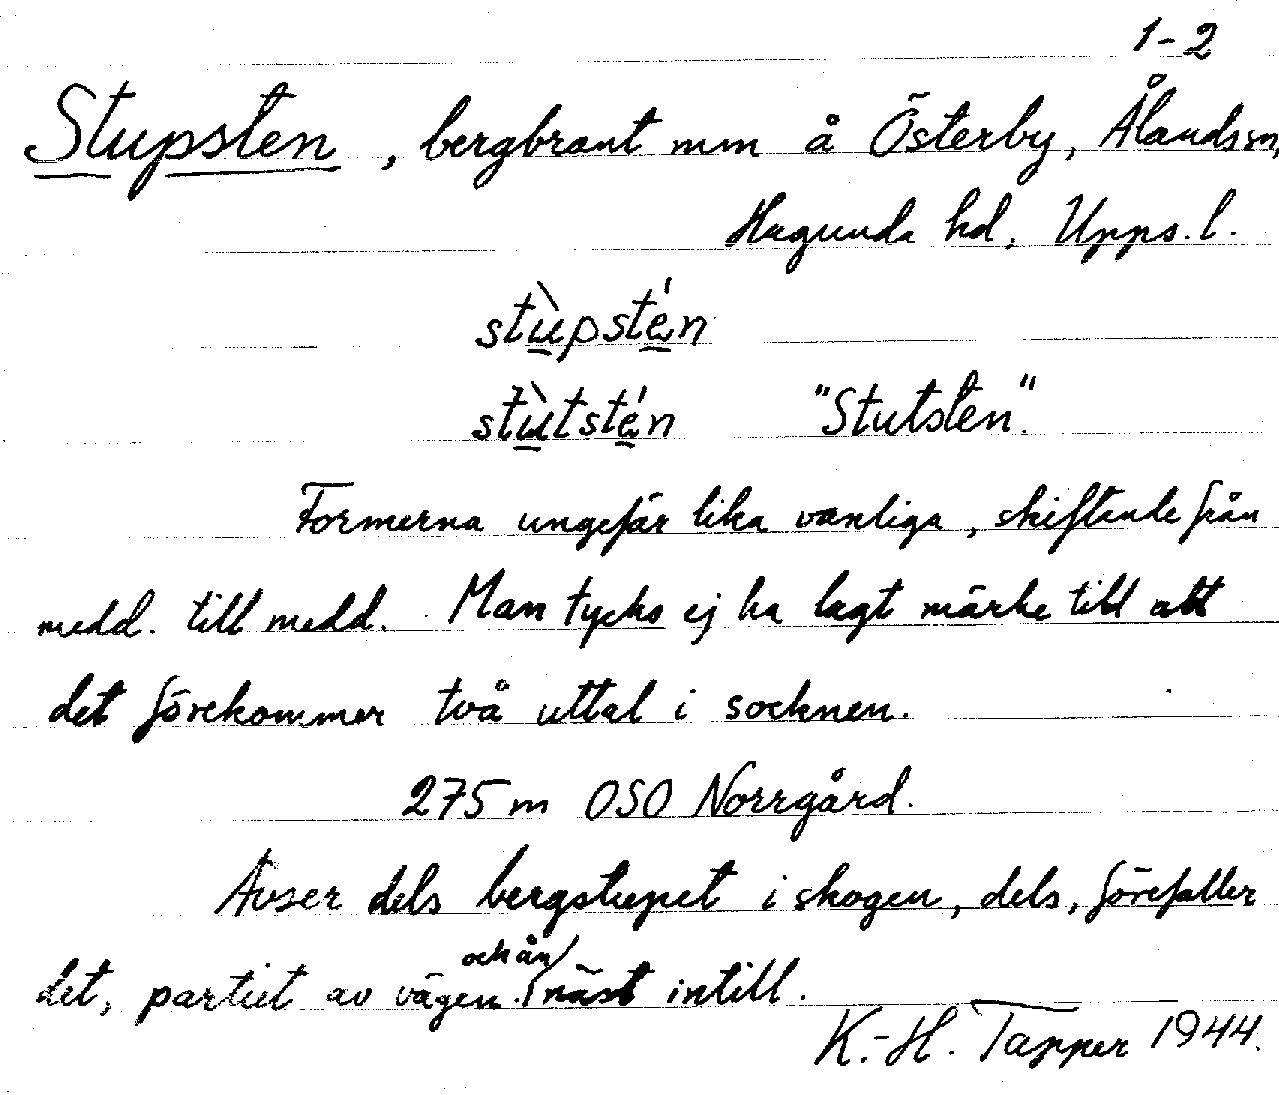 1-2
Stupsten, bergbrant mm å Österby, Ålands sn,
Hagunda hd, Upps. l.
stùpstén
stùtstén "Stutsten".
Formerna ungefär lika vanliga, skiftande från
medd. till medd. Man tycks ej ha lagt märke till att
det förekommer två uttal i socknen.
275 m OSO Norrgård.
Avser dels bergstupet i skogen, dels, förefaller
och ån
det, partiet av vägen näst intill.
K.-H. Tapper 1944.